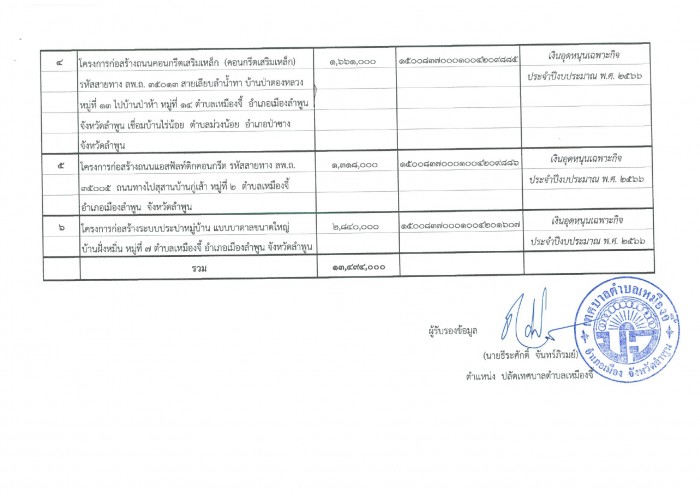 ๔ โครงการก่อสร้างถนนคอนกรีตเสริมเหล็ก (คอนกรีตเสริมเหล็ก) ๑,๖๖๑,๐๐๐ ๑๕๐๐๘๓๗๐๐๐๑๐๐๔๒๐๙๘๘๕ เงินอุดหนุนเฉพาะกิจ
รหัสสายทาง ลพ.ถ. ๓๕๐๑๓ สายเลียบลำน้ำทา บ้านป่าตองหลวง ประจำปีงบประมาณ พ.ศ. ๒๕๖๖
หมู่ที่ ๑๓ ไปบ้านป่าห้า หมู่ที่ ๑๔ ตำบลเหมืองจี้ อำเภอเมืองลำพูน
จังหวัดลำพูน เชื่อมบ้านไร่น้อย ตำบลม่วงน้อย อำเภอป่าซาง
จังหวัดลำพูน
๕ โครงการก่อสร้างถนนแอสฟัลท์ติกคอนกรีต รหัสสายทาง ลพ.ถ. ๑,๓๑๘,๐๐๐ ๑๕๐๐๘๓๗๐๐๐๑๐๐๔๒๐๙๘๘๖ เงินอุดหนุนเฉพาะกิจ
๓๕๐๐๕ ถนนทางไปสุสานบ้านกู่เส้า หมู่ที่ ๒ ตำบลเหมืองจี้ ประจำปีงบประมาณ พ.ศ. ๒๕๖๖
อำเภอเมืองลำพูน จังหวัดลำพูน
๖ โครงการก่อสร้างระบบประปาหมู่บ้าน แบบบาดาลขนาดใหญ่ ๒,๘๔๐,๐๐๐ ๑๕๐๐๘๓๗๐๐๐๑๐๐๔๒๐๑๖๐๗ เงินอุดหนุนเฉพาะกิจ
บ้านฝั่งหมิ่น หมู่ที่ ๗ ตำบลเหมืองจี้ อำเภอเมืองลำพูน จังหวัดลำพูน ประจำปีงบประมาณ พ.ศ. ๒๕๖๖
รวม ๑๓,๔๙๔,๐๐๐
ผู้รับรองข้อมูล
(นายธีระศักดิ์ จันทร์ภิรมย์)
ตำแหน่ง ปลัดเทศบาลตำบลเหมืองจี้
เทศบาลตำบลเหมืองจี้
อำเภอเมือง จังหวัดลำพูน